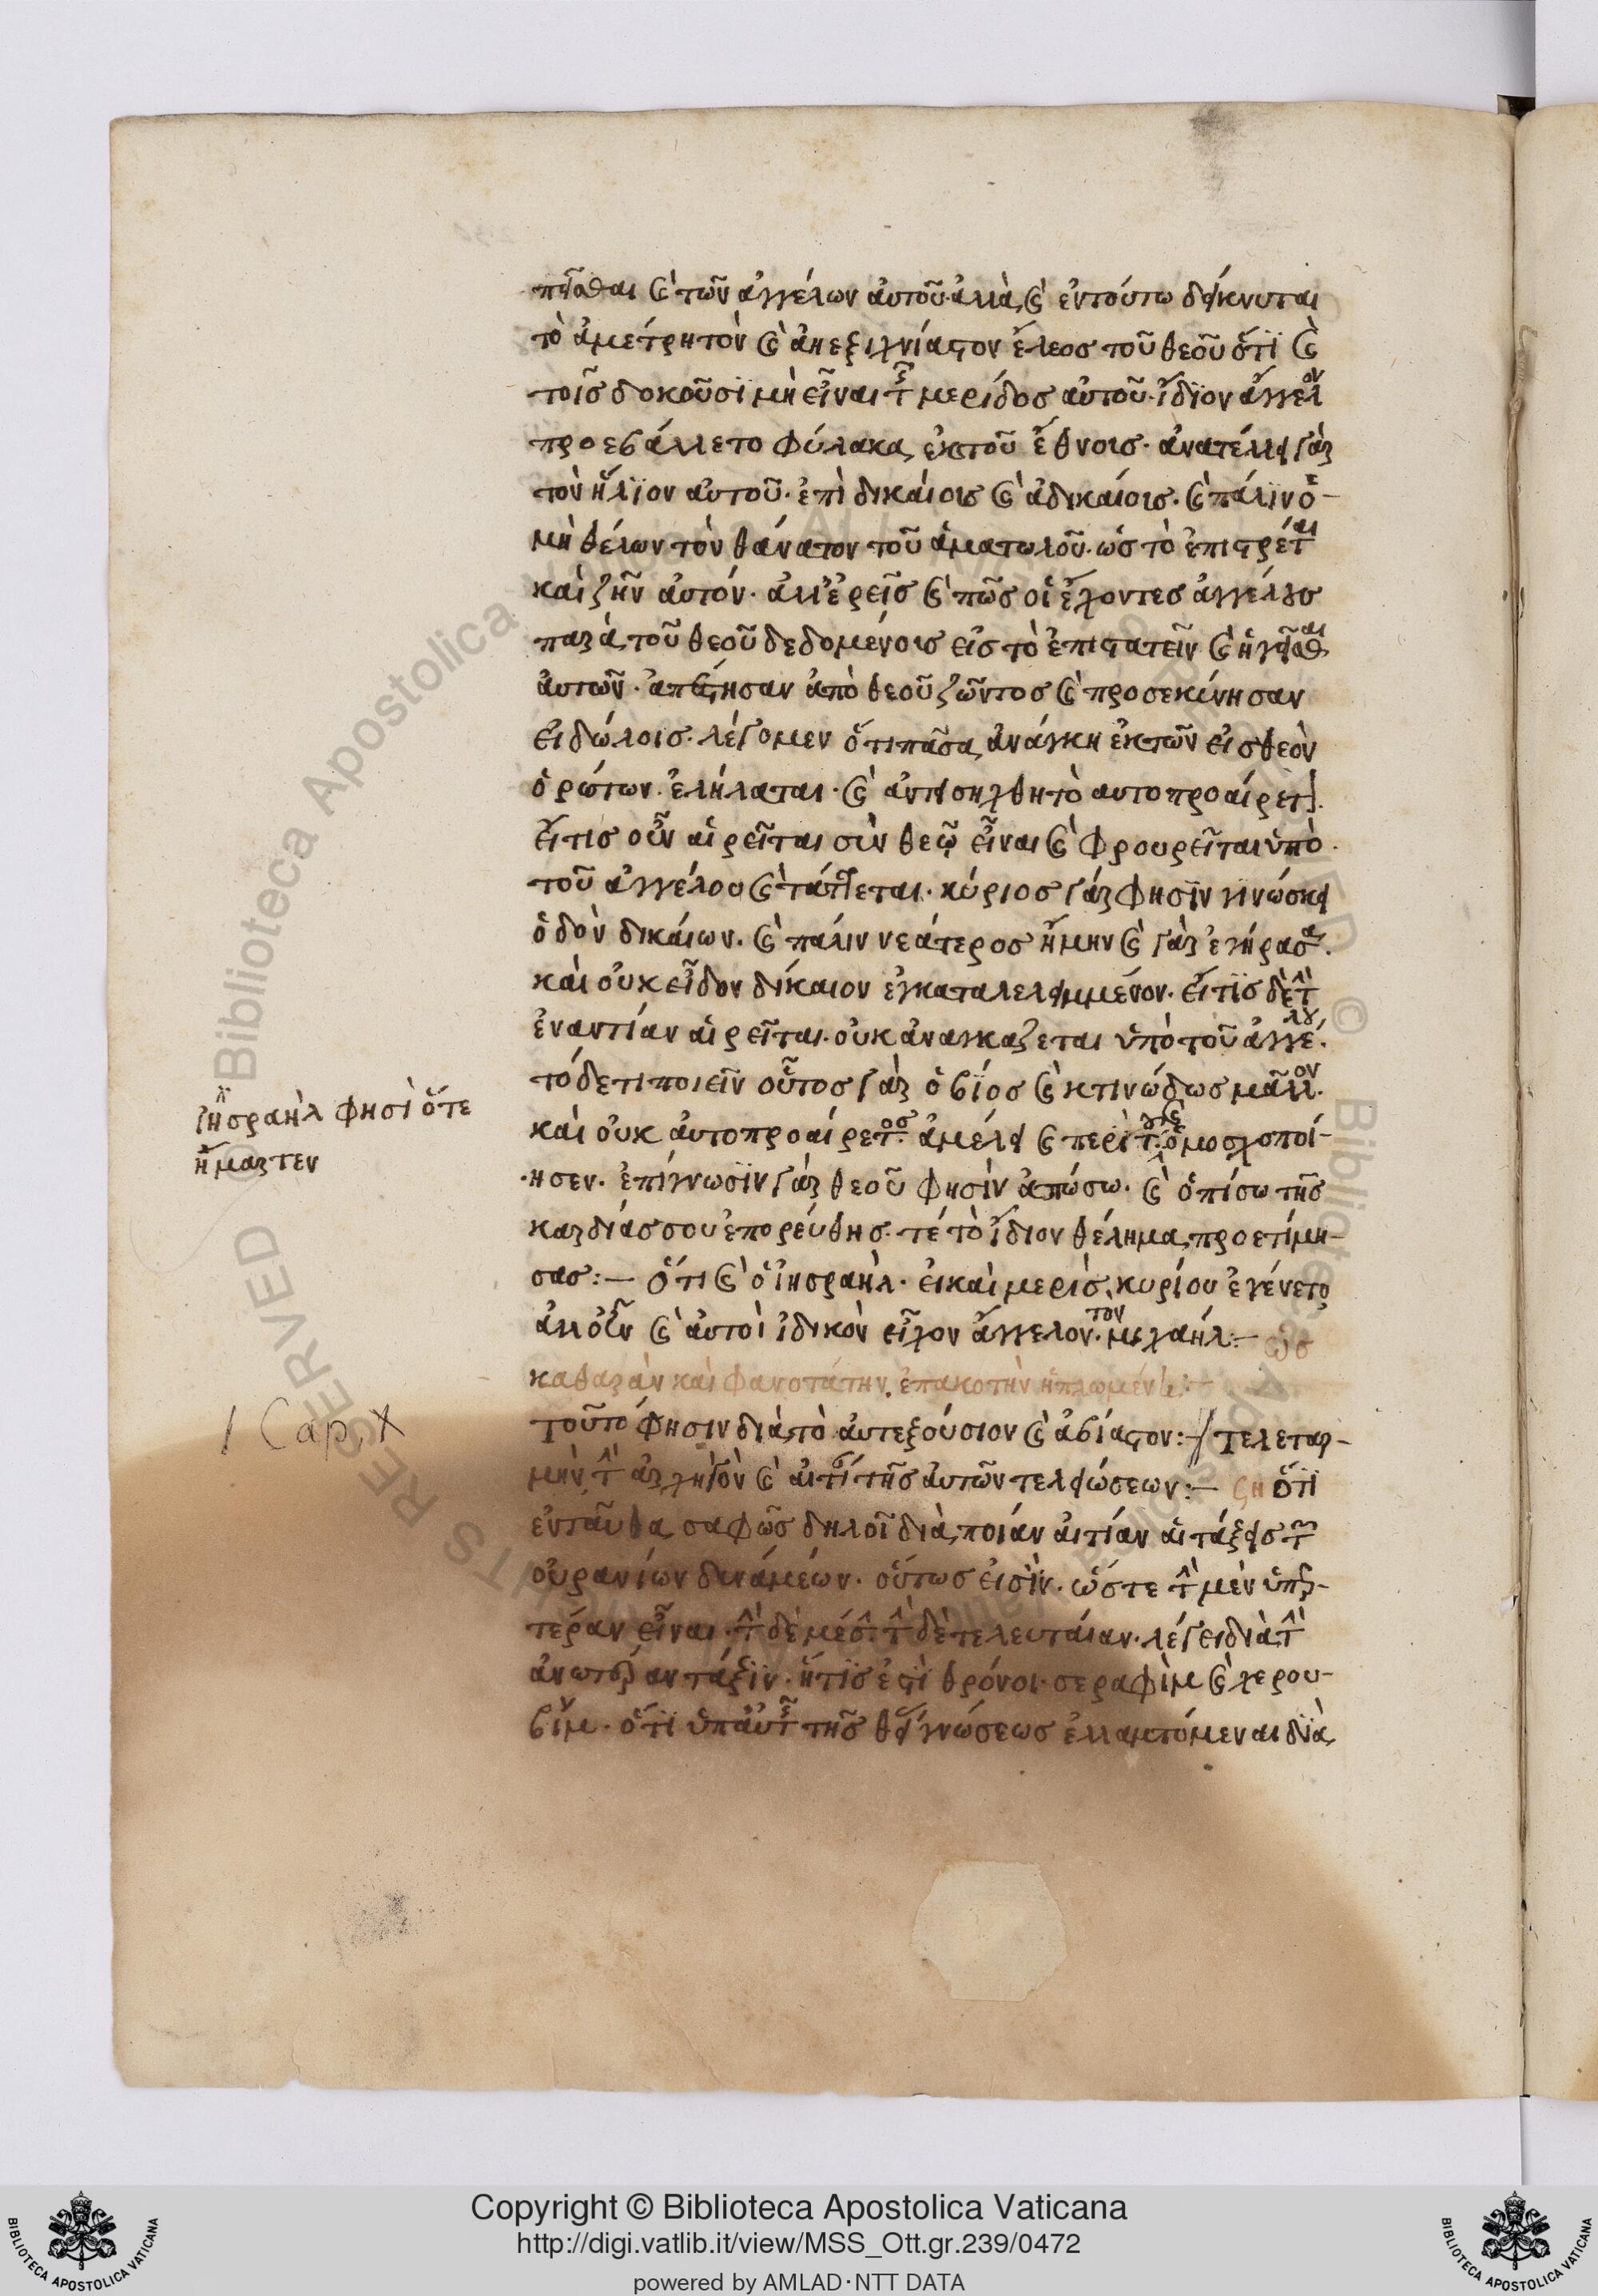 καὶ τῶν ἀγγέλων αὐτοῦ· ἀλλὰ καὶ ἐν τούτω δείκνυται
τὸ ἀμέτρητὸν καὶ ἀνεξιχνίαστον ἔλεος τοῦ θεοῦ ὅτϊ καὶ
τοῖς δοκοῦσϊ μὴ εἶναι τῆς μερίδος αὐτοῦ· ἴδϊον ἄγγελον
προεβάλλετο φύλακα ἑκάστου ἔθνοις· ἀνατέλλει γὰρ
τὸν ἥλϊον αὐτοῦ· ἐπὶ δικαίοις καὶ ἀδικαίοις· καὶ πάλϊν ὁ-
μὴ θέλων τὸν θάνατον τοῦ ἁματωλοῦ· ὡς τὸ ἐπιστρέται
καὶ ζῆν αὐτόν· ἀλλ' ἐρεῖς καὶ πῶς οἱ ἔχοντες ἀγγέλους
παρὰ τοῦ θεοῦ δεδομένοις εἰς τὸ ἐπιστατεῖν καὶ ἡγεῖσθαι
αὐτῶν· ἀπέστησαν ἀπὸ θεοῦ ζῶντος καὶ προσεκίνησαν
εἰδώλοις· λέγομεν ὅτι πᾶσα ἀνάγκη ἐκ τῶν εἰς θεὸν
ὁρώτων· ἐλήλαται· καὶ ἀντεισήχθη τὸ αυτοπροαίρετον.
εἴτις οὖν αἱρεῖται σὺν θεῷ εἶναι καὶ φρουρεῖται ὑπὸ
τοῦ ἀγγέλου καὶ τάττεται· κύριος γάρ φησϊν γϊνώσκει
ὁδὸν δικαίων· καὶ πάλιν νεάτερος ἤμην καὶ γὰρ ἐγήρασα.
καὶ οὐκ εἶδον δίκαιον ἐγκαταλελειμμένον· εἴτϊς δὲ τὴν
ἐναντίαν αἱρεῖται· οὐκ ἀναγκαζεται ὑπὸ τοῦ ἀγγέλου.
τόδε τι ποιεῖν οὗτος γὰρ ὁ βίος καὶ κτινώδως μᾶλλον.
καὶ οὐκ ἀυτοπροαίρετος· ἀμέλει καὶ περὶ τούτου ὁ μοσχοποί-
ησεν· ἐπίγνωσϊν γὰρ θεοῦ φησὶν ἀπώσω· καὶ ὀπίσω τῆς
καρδίας σου ἐπορεύθης· τέ τὸ ἴδιον θέλημα προετίμη-
σας:— ὅτι καὶ ὁ ἰησραὴλ· εἰ καὶ μερὶς κυρίου ἐγένετο
ἀλλ' οὖν καὶ ἀυτοὶ ἰδικὸν εἶχον ἄγγελον· τον μιχαήλ:— ὡς
καθαρὰν καὶ φανοτάτην. ἐπακοτὴν ἡπλωμένην:—
τοῦτό φησιν διὰ τὸ ἀυτεξούσιον καὶ ἀβίαστον:— τελεταρ-
μὴν τὴν ἀρχηγὸν καὶ αἰτίαν τῆς ἀυτῶν τελειώσεων:— ση ὅτϊ
ἐνταῦθα σαφῶς δηλοῖ διὰ ποιάν αἰτίαν αἱ τάξεις τῶν
οὐρανίων δυνάμέων· οὕτως εἰσὶν· ὥστε τὴν μὲν ὑπερ-
τεράν εἶναι· τὴν δὲ μέσην τὴν δὲ τελευταίαν· λέγει διὰ τὴν
ἀνωτέραν τάξϊν· ἥτϊς ἐστὶ θρόνοι· σεραφὶμ καὶ χερου-
βίμ· ὅτϊ ὑπ' ἀυτῆς τῆς θείας γνώσεως ἐλλαμπόμεναι διὰ
ἰησραὴλ φησὶ ὅτε
ἥμαρτεν
Cap. X
Copyright © Biblioteca Apostolica Vaticana
http://digi.vatlib.it/view/MSS_Ott.gr.239/0472
powered by AMLAD·NTT DATA
BIBLIOTECA APOSTOLICA VATICANA
BIBLIOTECA APOSTOLICA VATICANA